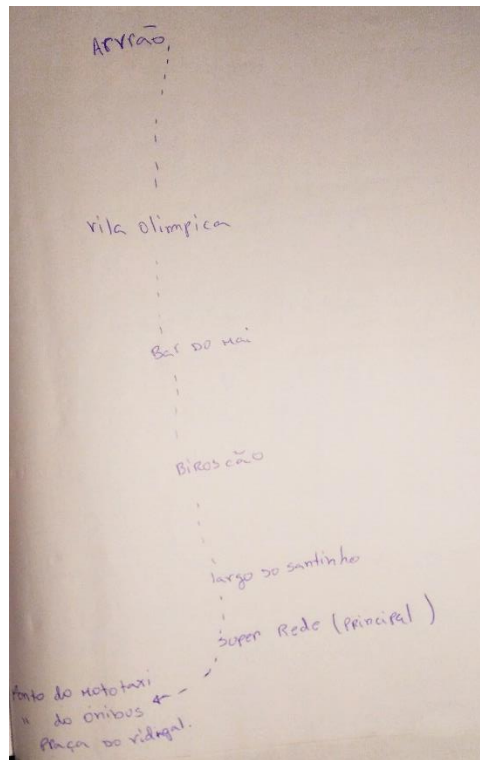 Arvrão
vila olimpica
Bar do Hai
Biroscão
largo do santinho
Super Rede (principal)
Ponto do Mototaxi
" do ônibus
Praça do vidigal.